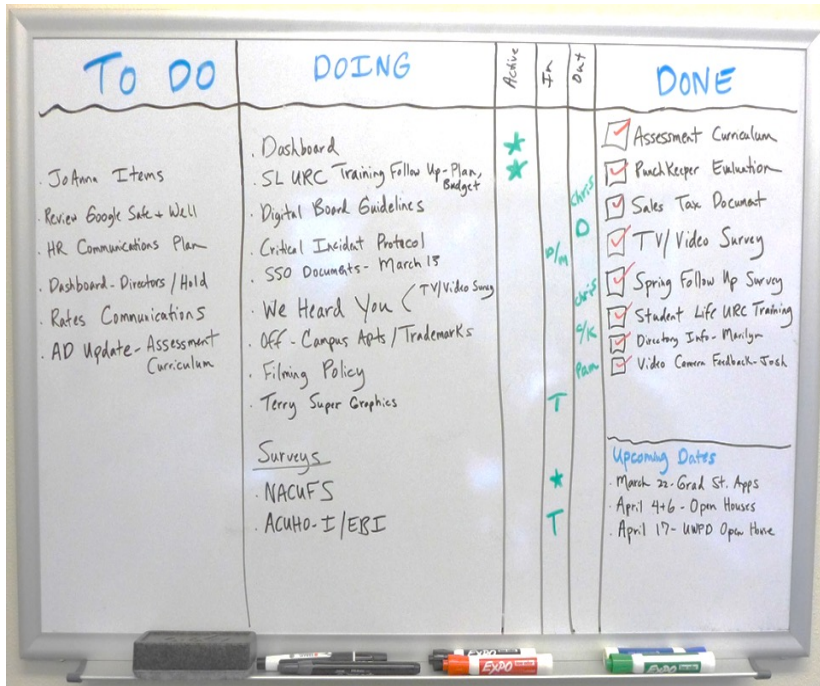 TO DO
DOING
Active
In
Out
DONE
· JoAnna Items
· Review Google Safe + Well
· HR Communications Plan
· Dashboard - Directors / Hold
· Rates Communications
· AD Update - Assessment
Curriculum
· Dashboard
· SL URC Training Follow Up - Plan,
Budget
· Digital Board Guidelines
Chris
· Critical Incident Protocol
D
· SSO Documents - March 15
D/M
· We Heard You ( TV/Video Survey
Chris
· Off - Campus Apts / Trademarks
C/K
· Filming Policy
Pam
· Terry Super Graphics
T
Surveys
· NACUFS
· ACUHO-I/EBI
T
Assessment Curriculum
PunchKeeper Evaluation
Sales Tax Document
TV/Video Survey
Spring Follow Up Survey
Student Life URC Training
Directory Info - Marilyn
Video Camera Feedback - Josh
Upcoming Dates
· March 22 - Grad St. Apps
· April 4+6 - Open Houses
· April 17 - UWPD Open House
EXPO
EXPO